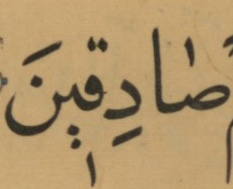 صَادِقِينَ